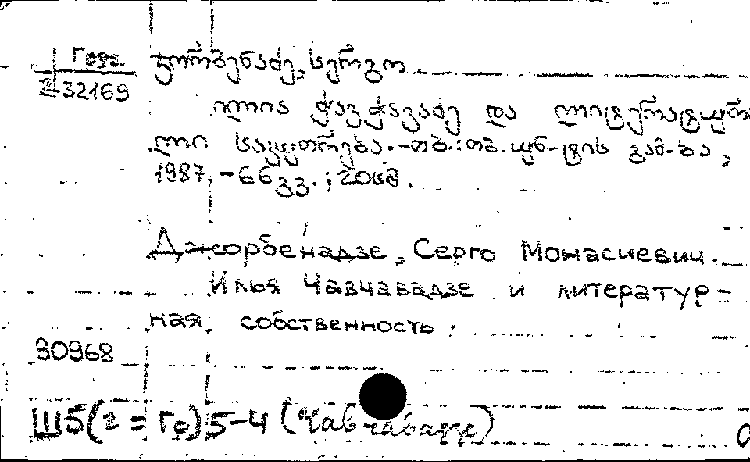 Г892
232169
ჯორბენაძე, სერგო
ილია ჭავჭავაძე და ლიტერატურუ
ლი საკუთრება.-თბ.:თბ.უნ-ტის გამ-ბა,
1987, -66გვ.; 20სმ.
Джорбенадзе, Серго Монасиевич.
Илья Чавчавадзе и литератур-
ная собственность.
90968
Ш5(2=Ге)5-4 (Чавчавадзе)